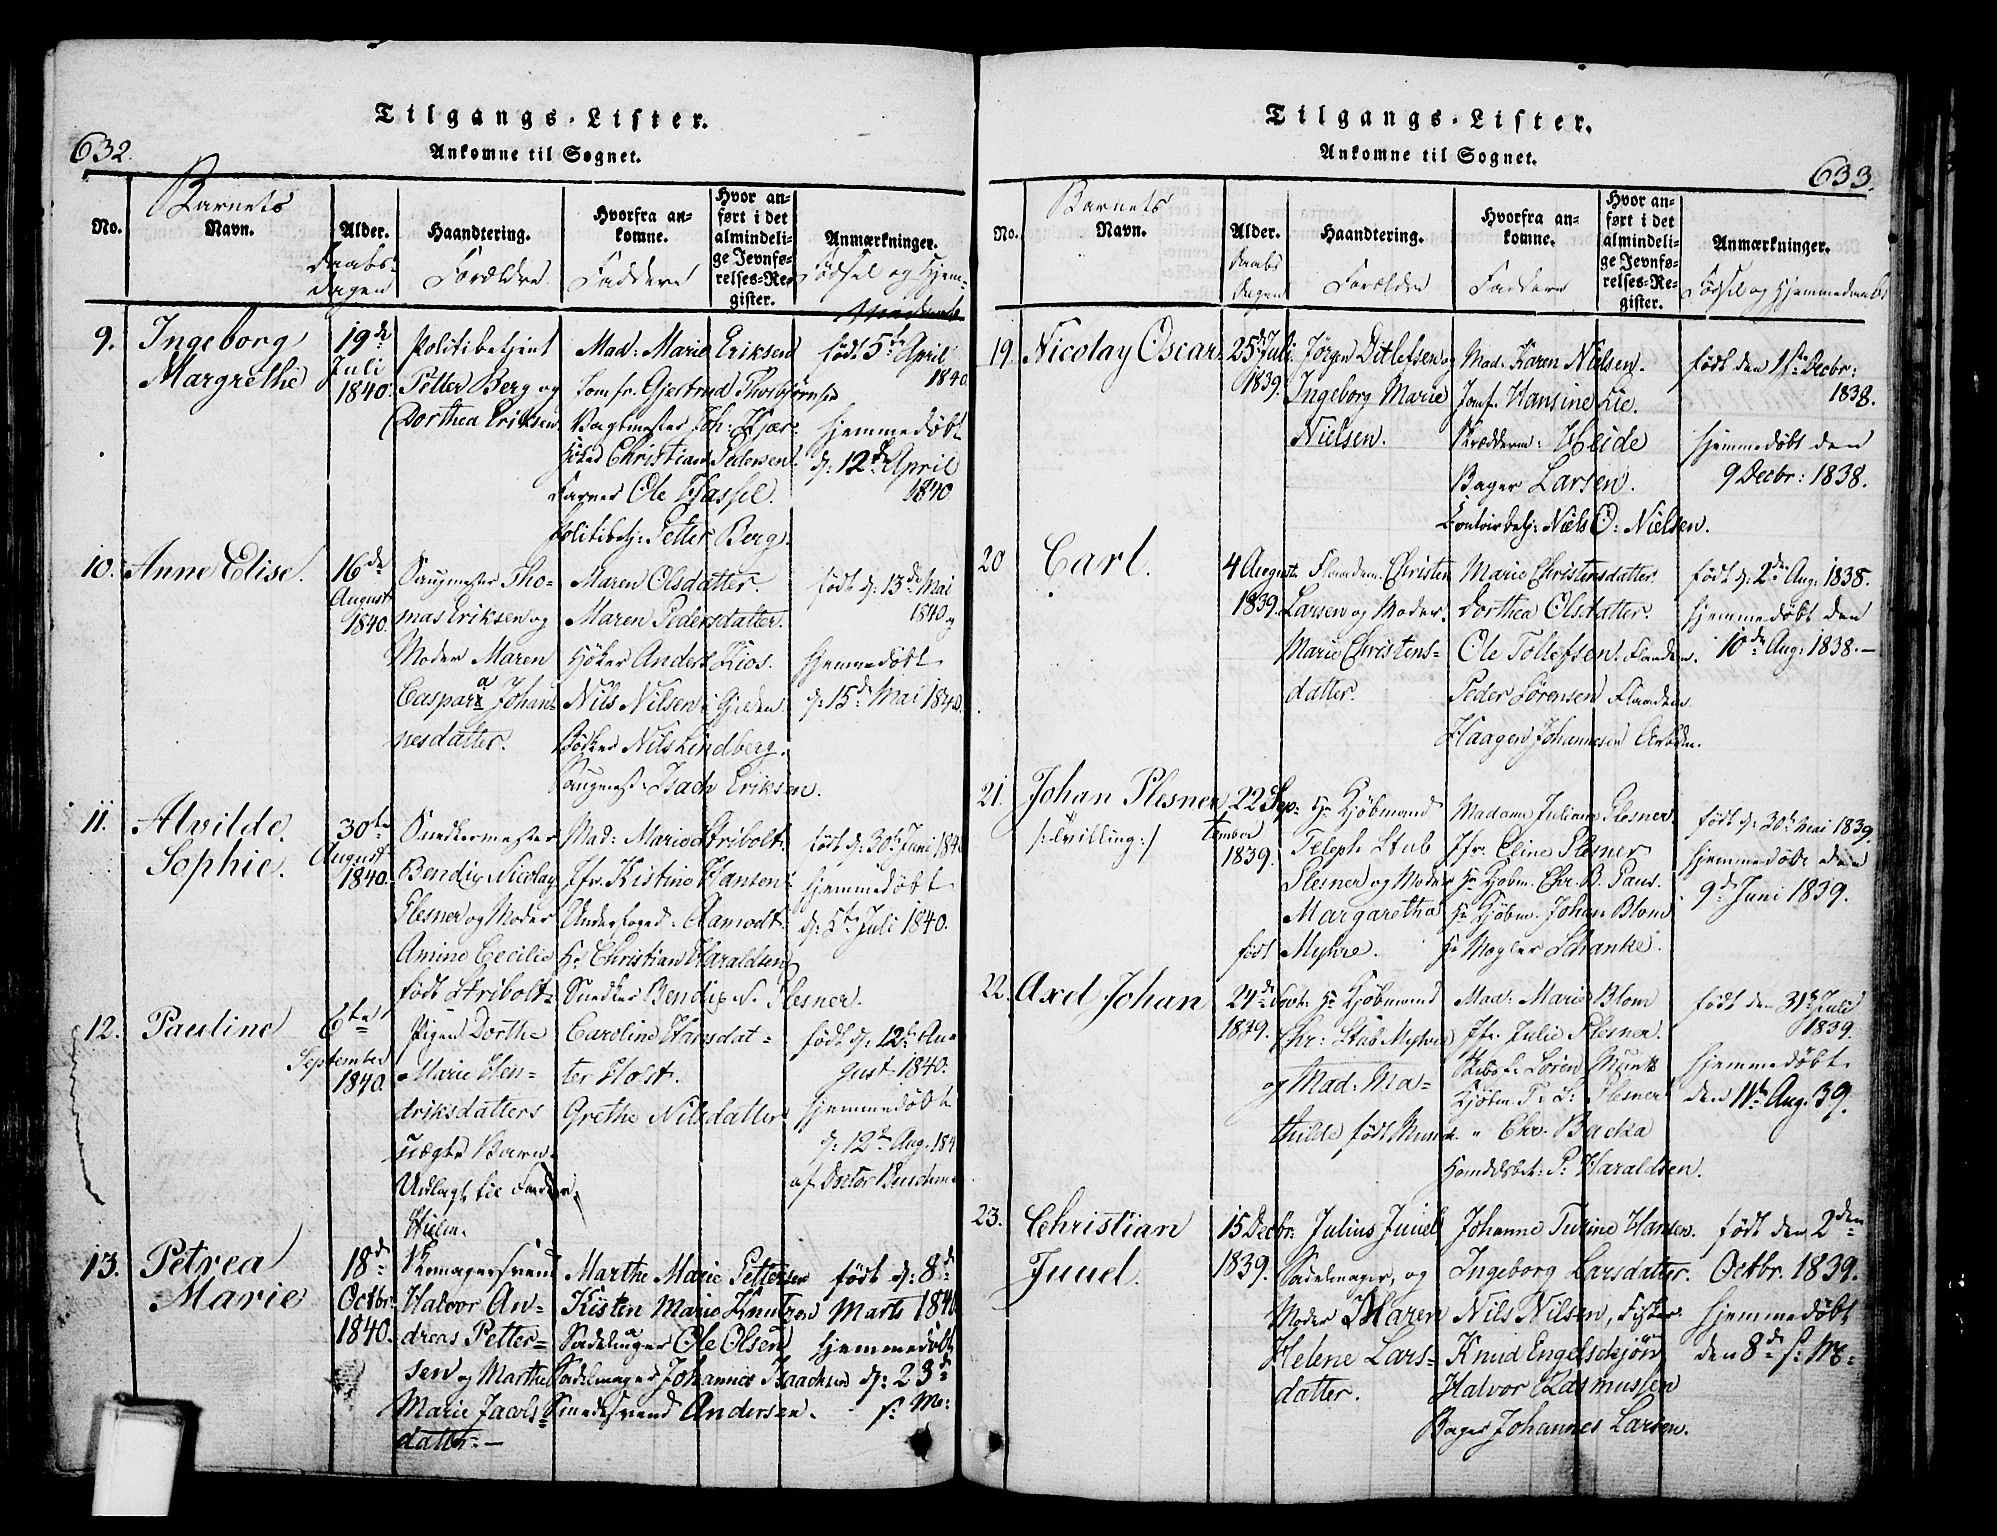 632.
Tilgangs-Lister.
Ankomne til Sognet.
No.
Barnets
Navn.
Alder.
Daabs-
dagen
Haandtering.
Forældre
Hvorfra an-
komne.
Faddere
Hvor an-
ført i det
almindeli-
ge Jevnfø-
relses-Re-
gister.
Anmærkninger.
Fødsel og Hjem-
9.
Ingeborg
Margrethe
19de
Juli
1840.
Politibetjent
Petter Berg og
Dorthea Eriksen
Mad: Marie Eriksen
Jomfr. Gjertrud Thorbjørnsen
Vagtmester Joh: Kjær-
Christian Pedersen
Farver Ole Hassel.
Politibetj: Petter Berg.
født 5te April
1840.
hjemmedøbt
d: 12de April
1840
10.
Anne Elise.
16de
August
1840.
Saugmester Tho-
mas Eriksen og
Moder Maren
Caspara Johan-
nesdatter.
Maren Olsdatter.
Maren Pedersdatter.
Høker Anders Kios.
Nils Nilsen i Gjelden
Bødker Nils Lindberg.
Saugmest. Isach Eriksen.
født d: 13de Mai
1840 og
hjemmedøbt
d: 15de Mai 1840.
11.
Alvilde
Sophie.
30te
August
1840.
Snedkermester
Bendix Nicolay
Plesner og Moder
Amine Cecilie
født Stribolt-
Mad: Marie Stribolt.
Jfr. Kistine Hansen
Underfoged: Aamodt.
Hr Christian Haraldsen
Snedker Bendix N. Plesner.
født d: 30te Juni 184
hjemmedøbt
d: 5te Juli 1840.
12.
Pauline
6te
September
1840.
Pigen Dorthe
Marie Hen-
driksdatters
uægte Barn.
Udlagt til Fader
Caroline Hansdat-
ter Holst.
Grethe Nilsdatter
født d: 12te Au-
gust 1840.
hjemmedøbt
d: 12te Aug. 184
af Doctor
13.
Petrea
Marie
18de
Octbr.
1840.
Halvor An-
dreas Petter-
sen og Marthe
Marie Jacobs-
datter.
Marthe Marie Pettersen
Kisten Marie Knutzen
Sadelmager Ole Olsen
Sadelmager Johannes Isachsen
Smedesvend Andersen.
født d: 8de
Marts 1840
hjemmedøbt
d: 23de
s: M:
Tilgangs-Lister.
Ankomne til Sognet.
633.
No.
Barnets
Navn.
Alder.
Daabs
dagen
Haandtering.
Forældre
Hvorfra an-
komne.
Faddere
Hvor an-
ført i det
almindeli-
ge Jevnfø-
relses-Re-
gister.
Anmærkninger.
Fødsel og Hjemmedaab
19.
Nicolay Oscar.
25de Juli
1839.
Jørgen Ditlefsen og
Ingeborg Marie
Nielsen.
Mad: Karen Nielsen.
Jomf. Hansine Lie.
Skrædderm: Heide
Bager Larsen.
Contoirbetj: Niels O: Nielsen.
født den 1ste Decbr:
1838.
hjemmedøbt den
9 Decbr: 1838.
20
Carl.
4 August
1839.
Christen
Larsen og Moder
Marie Christens-
datter.
Marie Christensdatter.
Dorthea Olsdatter.
Ole Tollefsen.
Peder Sørensen
Haagen Johannesen Arbdm.
født d: 2de Aug: 1838.
hjemmedøbt den
10de Aug: 1838.—
21.
Johan Plesner
/:Tvilling:/
22 Sep-
tember
1839.
Hr Kjøbmand
Teleph Stub
Plesner og Moder
Margaretha
født Myhre.
Madame Juliane Plesner.
Jfr. Eline Plesner
Hr Kjøbm. Chr. B. Paus.
Hr Kjøbm. Johan Blom
Hr Mægler Schanke.
født d: 30te Mai 1839.
hjemmedøbt den
9de Juni 1839.
22.
Axel Johan
24de
1839.
Hr Kjøbmand
Chr: Stub Myhre
og Mad: Ma-
thilde født Munch.
Mad: Marie Blom
Jfr. Julie Plesner.
Søren Muntz
Kjøbm. T. S: Plesner
" Chr. Backa
Handelsbet: P: Haraldsen.
født den 31te Juli
1839.
hjemmedøbt
den 11te Aug. 39.
23.
Christian
Juuel.
15 Decbr.
1839.
Julius Juuel
Sadelmager, og
Moder Maren
Helene Lars-
datter.
Johanne Turine Hansen.
Ingeborg Larsdatter.
Nils Nilsen, Fisker
Knud Engelschjøn
Halvor Rasmussen
Bager Johannes Larsen.
født den 2den
Octbr. 1839.
hjemmedøbt
den 8de s: M: